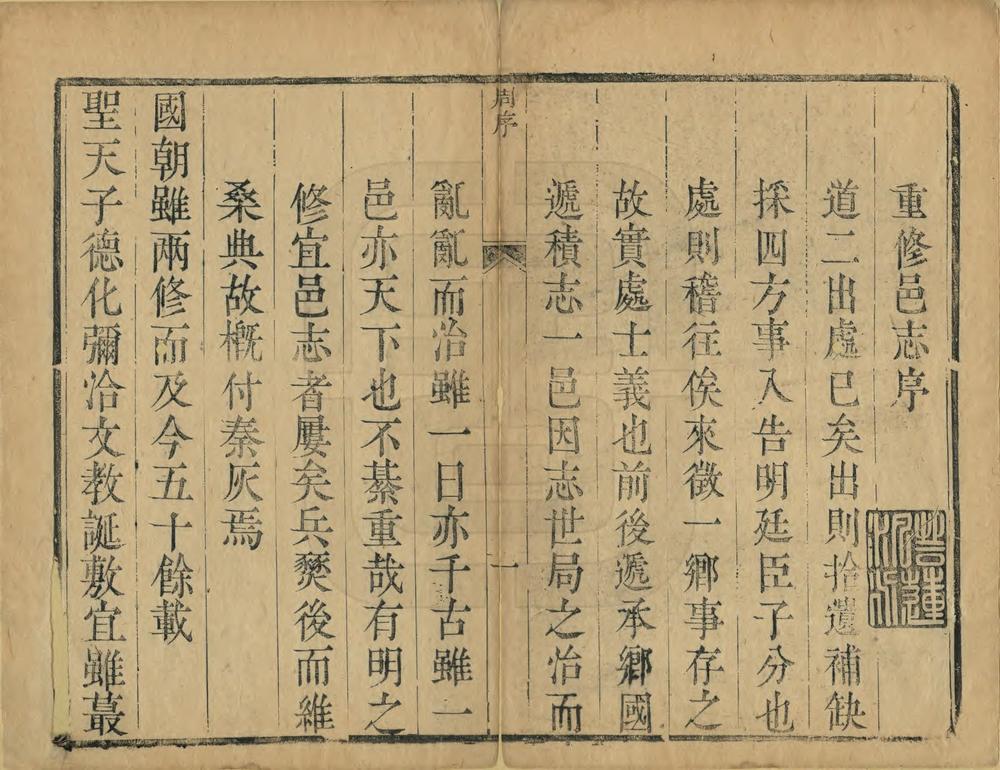 重修邑志序
道二出處已矣出則拾遺補缺
採四方事入告明廷臣子分也
處則稽往俟來徵一鄉事存之
故實處士義也前後遞承鄉國
遞積志一邑因志世局之治而
周序
一
亂亂而治雖一日亦千古雖一
邑亦天下也不綦重哉有明之
修宜邑志者屢矣兵燹後而維
桑典故槪付秦灰焉
國朝雖兩修而及今五十餘載
聖天子德化彌洽文教誕敷宜雖蕞